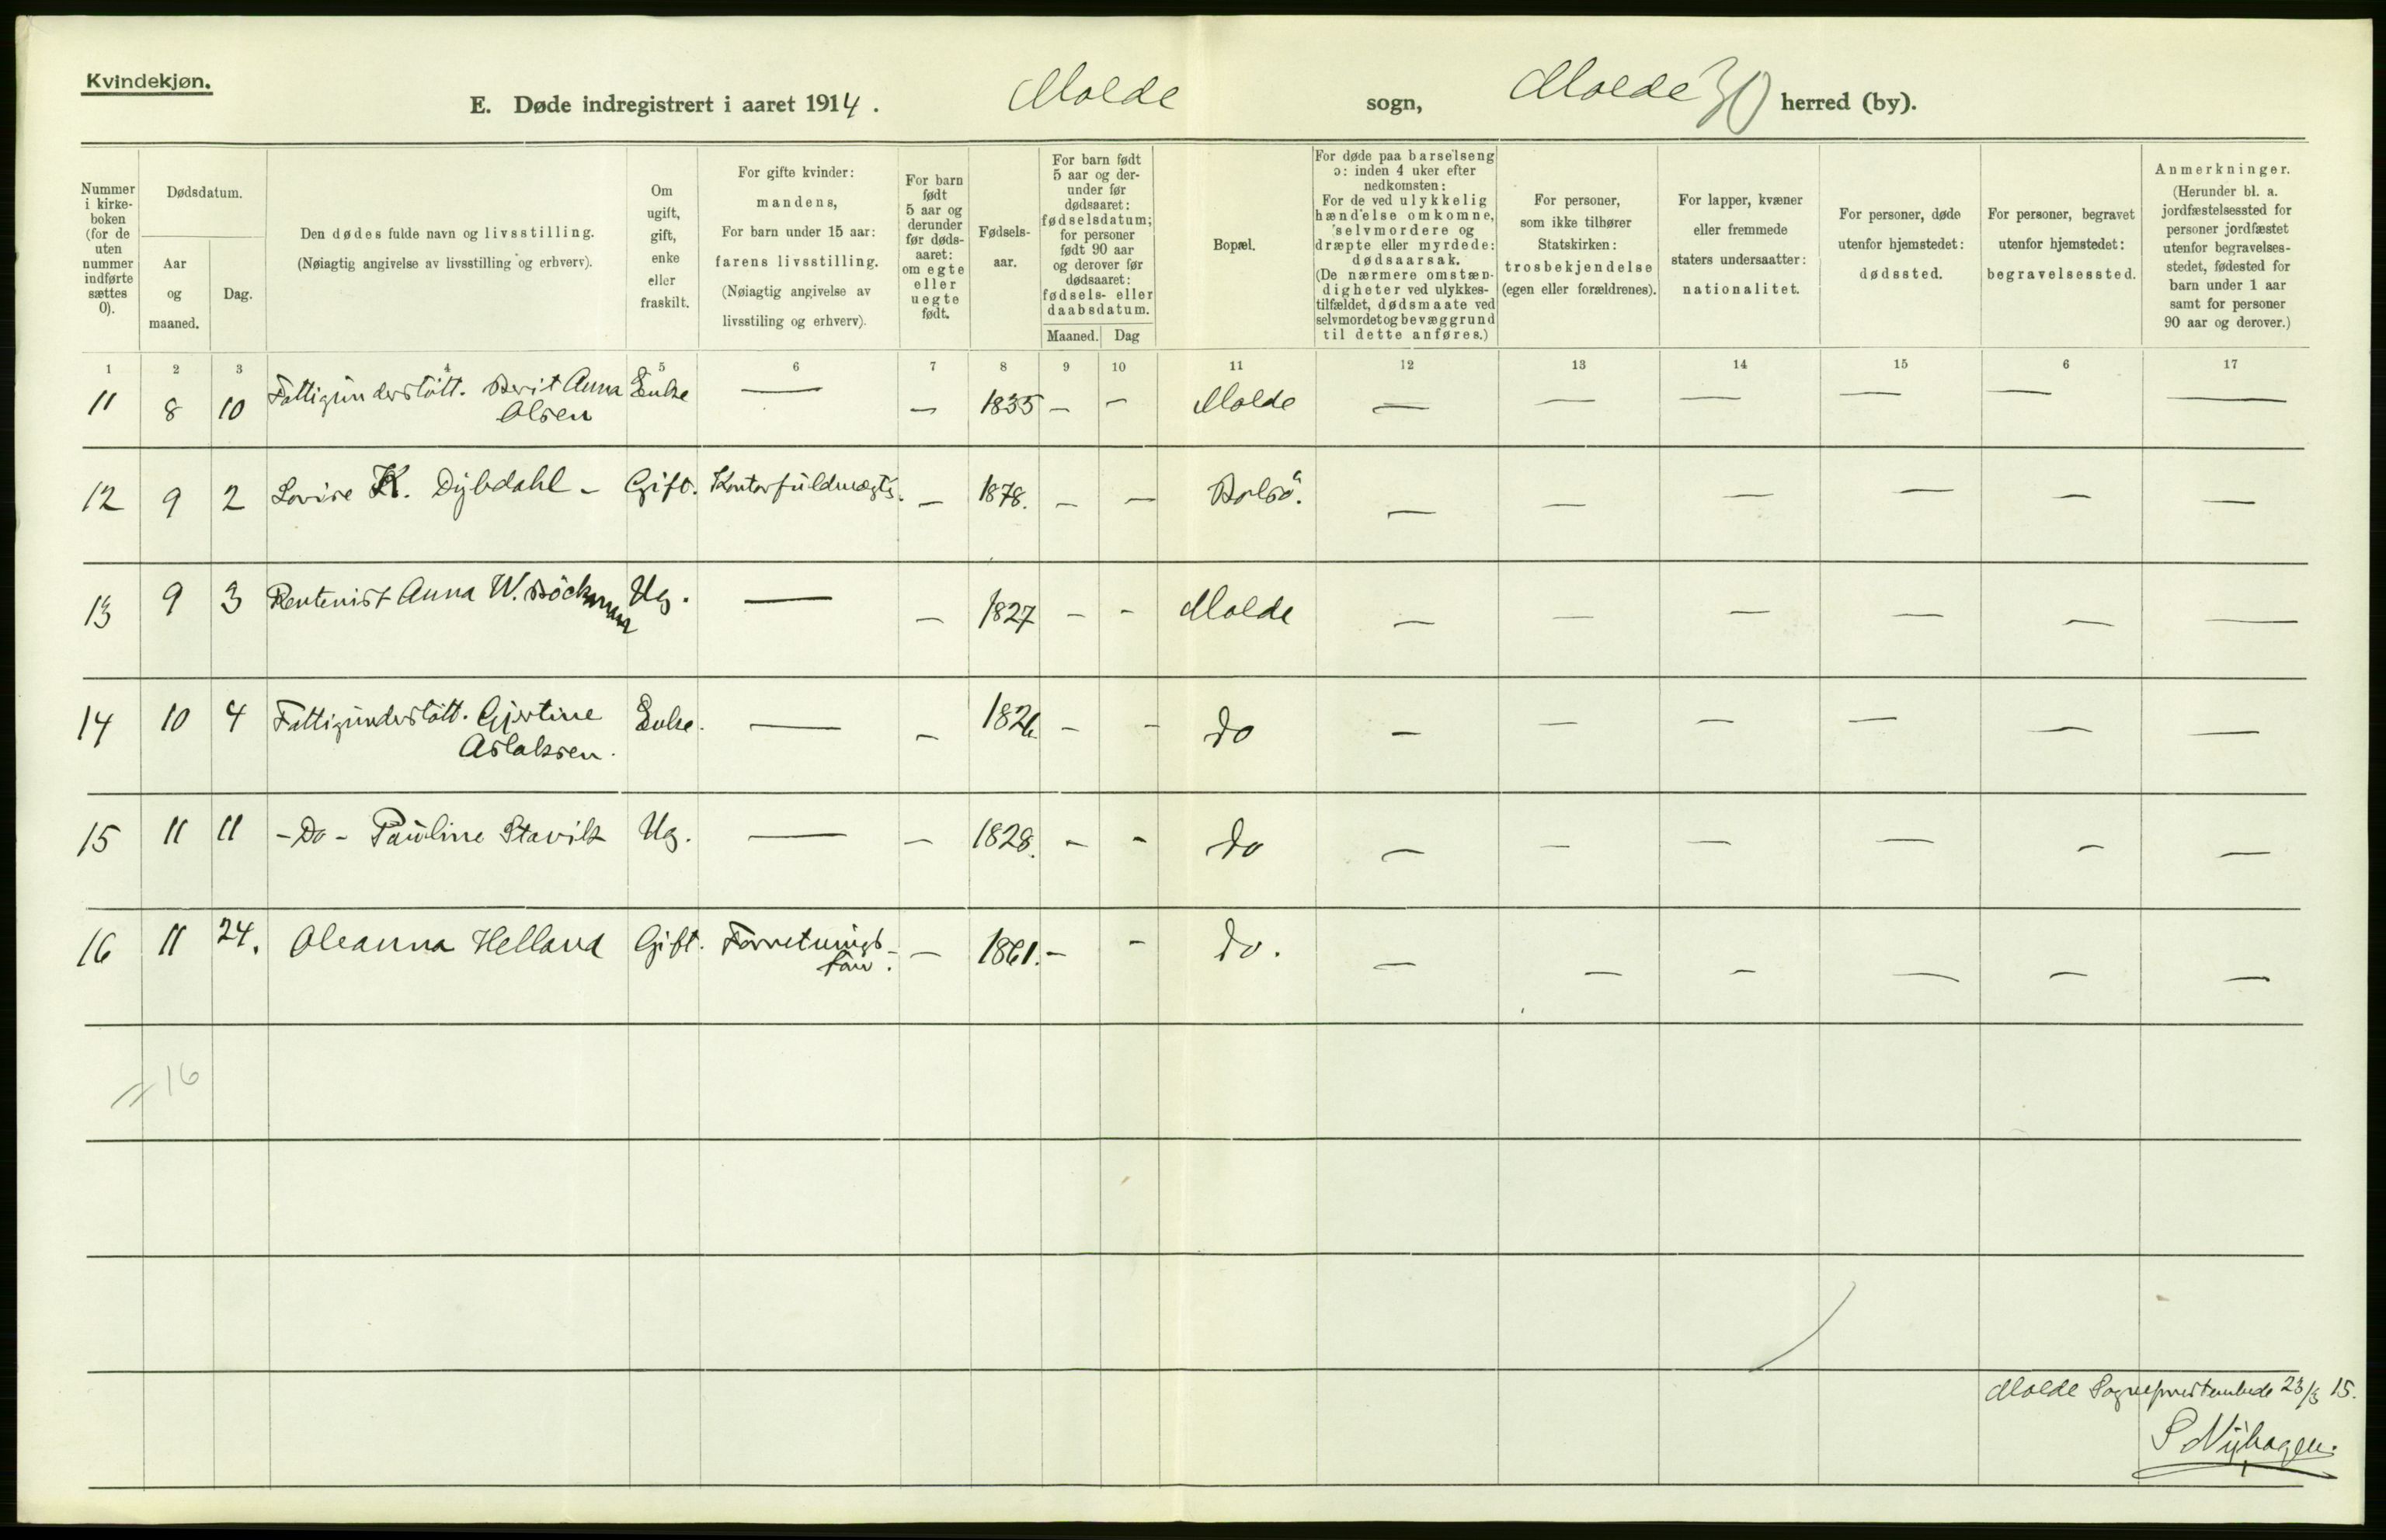 Kvindekjøn.
E. Døde indregistrert i aaret 1914. Molde sogn, Molde 30 herred (by).
Nummer i kirke-boken (for de uten nummer indførte sættes 0).
Dødsdatum.
Aar og maaned.
Dag.
Den dødes fulde navn og livsstilling.
(Nøiagtig angivelse av livsstilling og erhverv).
Om ugift, gift, enke eller fraskilt.
For gifte kvinder:
mandens,
For barn under 15 aar:
farens livsstilling.
(Nøiagtig angivelse av
livsstiling og erhverv).
For barn født 5 aar og derunder før døds-aaret: om egte eller uegte født.
Fødsels-aar.
For barn født 5 aar og der-under før dødsaaret: fødselsdatum; for personer født 90 aar og derover før dødsaaret: fødsels- eller daabsdatum.
Maaned. Dag
Bopæl.
For døde paa barselseng ɔ: inden 4 uker efter nedkomsten:
For de ved ulykkelig hændelse omkomne, selvmordere og dræpte eller myrdede: dødsaarsak.
(De nærmere omstæn-digheter ved ulykkes-tilfældet, dødsmaate ved selvmordet og bevæggrund til dette anføres.)
For personer, som ikke tilhører Statskirken: trosbekjendelse (egen eller forældrenes).
For lapper, kvæner eller fremmede staters undersaatter: nationalitet.
For personer, døde utenfor hjemstedet: dødssted.
For personer, begravet utenfor hjemstedet: begravelsessted.
Anmerkninger.
(Herunder bl. a. jordfæstelsessted for personer jordfæstet utenfor begravelses-stedet, fødested for barn under 1 aar samt for personer 90 aar og derover.)
1 2 3 4 5 6 7 8 9 10 11 12 13 14 15 6 17
11 8 10 Fattigunderstött. Berit Anna Enke — — 1835 — — Molde — — — — — —
Olsen
12 9 2 Lovise K. Dybdahl - Gift. Kontorfuldmægtg. — 1878. — — Bolsö. — — — — — —
13 9 3 Rentenist Anna W. Böckman Ug. — — 1827 — — Molde — — — — — —
14 10 4 Fattigunderstött. Gjertine Enke. — — 1826. — — do — — — — — —
Aslaksen.
15 11 11 - Do - Pauline Stavik Ug. — — 1828. — — do — — — — — —
16 11 24. Oleanna Helland Gift. Forretnings- — 1861. — — do. — — — — — —
= 16
Molde Sogneprestembede 23/3 15.
S Nyhagen.